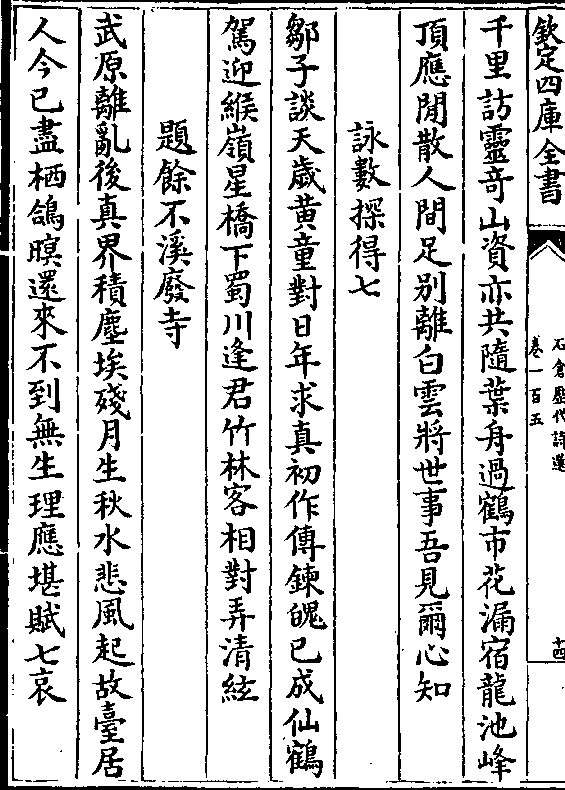 欽定四庫全書
石倉歷代詩選
卷一百五
十四
千里訪靈奇山資亦共隨葉舟過鶴市花漏宿龍池峰
頂應閒散人間足別離白雲將世事吾見爾心知
詠數探得七
鄒子談天歲黄童對日年求真初作傳鍊魄已成仙鶴
駕迎緱嶺星橋下蜀川逢君竹林客相對弄清絃
題餘不溪廢寺
武原離亂後真界積塵埃殘月生秋水悲風起故臺居
人今已盡栖鴿暝還來不到無生理應堪賦七哀